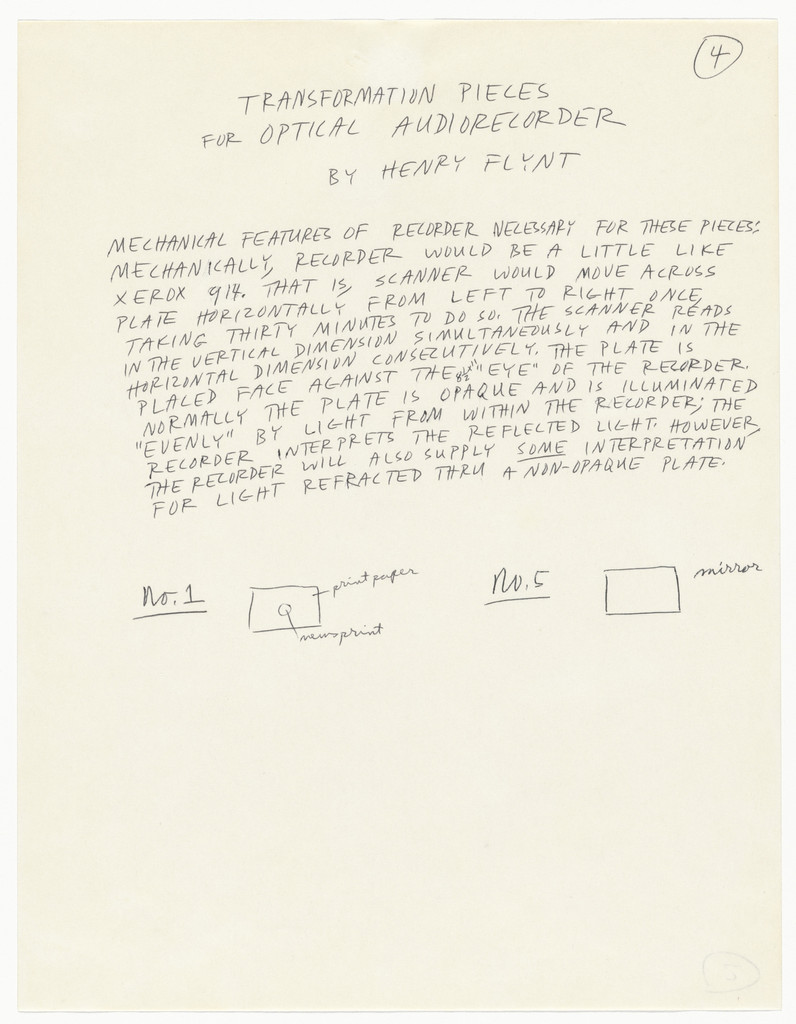 4
TRANSFORMATION PIECES
FOR OPTICAL AUDIORECORDER
BY HENRY FLYNT
MECHANICAL FEATURES OF RECORDER NECESSARY FOR THESE PIECES:
MECHANICALLY, RECORDER WOULD BE A LITTLE LIKE
XEROX 914. THAT IS, SCANNER WOULD MOVE ACROSS
PLATE HORIZONTALLY FROM LEFT TO RIGHT ONCE,
TAKING THIRTY MINUTES TO DO SO. THE SCANNER READS
IN THE VERTICAL DIMENSION SIMULTANEOUSLY AND IN THE
HORIZONTAL DIMENSION CONSECUTIVELY. THE PLATE IS
PLACED FACE AGAINST THE "EYE" OF THE RECORDER.
NORMALLY THE PLATE IS OPAQUE AND IS ILLUMINATED
"EVENLY" BY LIGHT FROM WITHIN THE RECORDER; THE
RECORDER INTERPRETS THE REFLECTED LIGHT. HOWEVER,
THE RECORDER WILL ALSO SUPPLY SOME INTERPRETATION
FOR LIGHT REFRACTED THRU A NON-OPAQUE PLATE.
No. 1
print paper
newsprint
No. 5
mirror